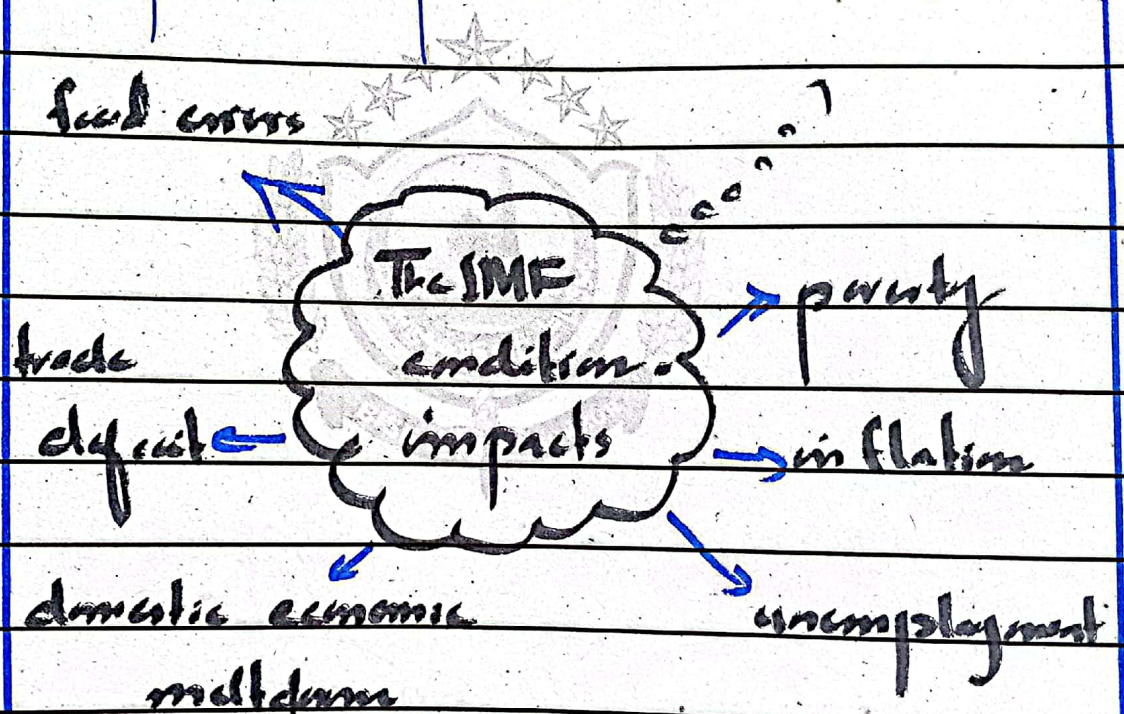 food crises
The IMF
condition.
impacts
poverty
trade
deficit
inflation
domestic economic
meltdown
unemployment